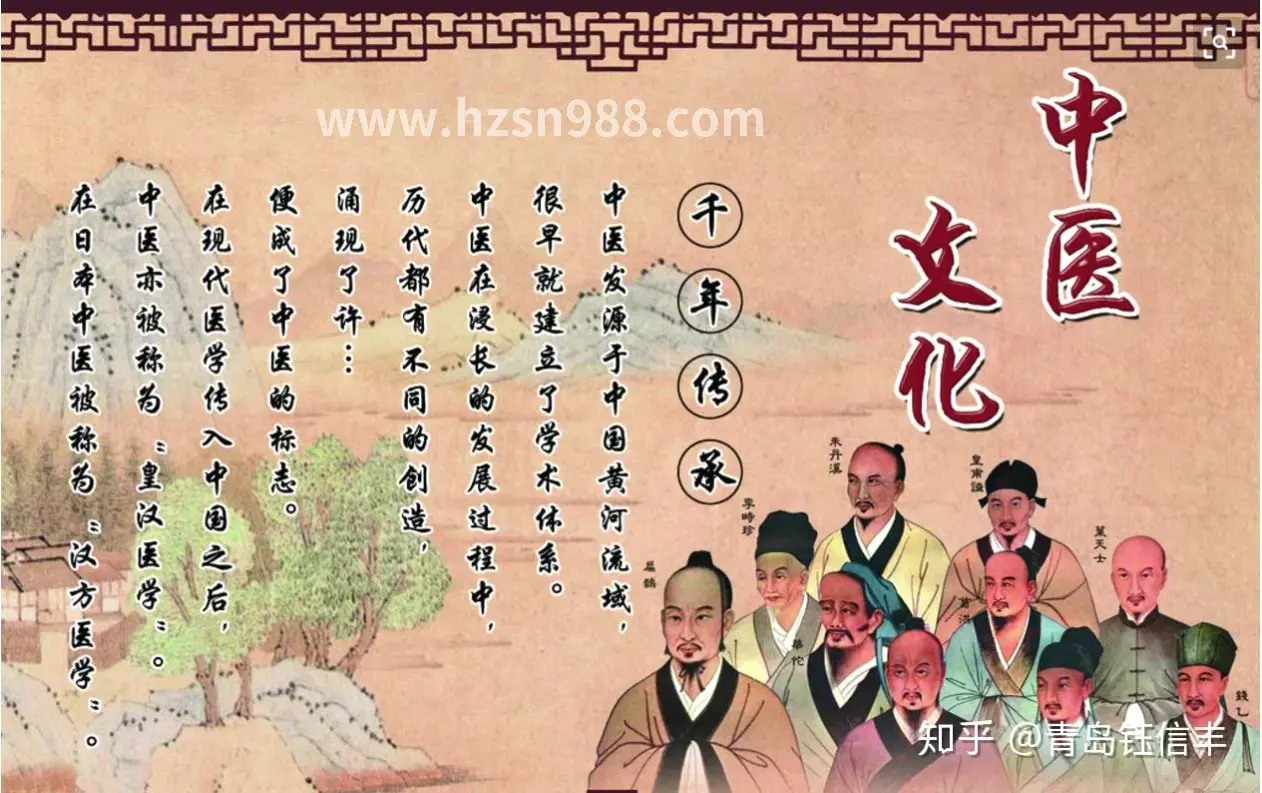 www.hzsn988.com
中医
文化
千年传承
中医发源于中国黄河流域，
很早就建立了学术体系。
中医在浸长的发展过程中，
历代都有不同的创造，
涌现了许…
便成了中医的标志。
在现代医学传入中国之后，
中医亦被称为“皇汉医学”。
在日本中医被称为“汉方医学”。
朱丹溪
皇甫謐
李時珍
葉天士
扁鵲
葛洪
華佗
錢乙
知乎 @青岛钰信丰